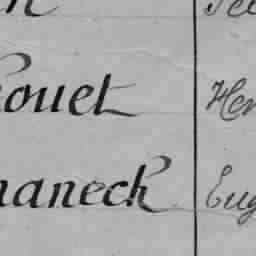 ouet Hen
naneck Eug